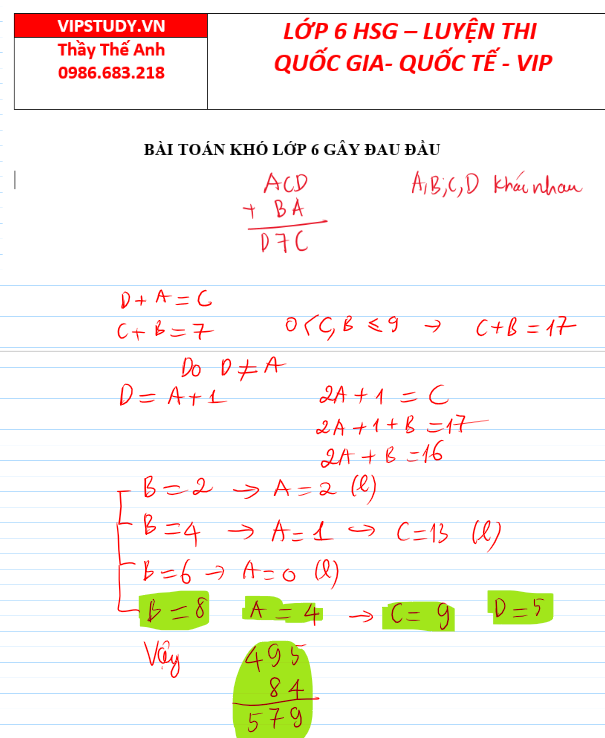 VIPSTUDY.VN
Thầy Thế Anh
0986.683.218
LỚP 6 HSG – LUYỆN THI
QUỐC GIA- QUỐC TẾ - VIP
BÀI TOÁN KHÓ LỚP 6 GÂY ĐAU ĐẦU
ACD
+ BA
D7C
A,B,C,D khác nhau
D + A = C
C + B = 7
0 < C, B ≤ 9 → C + B = 17
Do D ≠ A
D = A + 1
2A + 1 = C
2A + 1 + B = 17
2A + B = 16
B = 2 → A = 2 (l)
B = 4 → A = 1 → C = 13 (l)
B = 6 → A = 0 (l)
B = 8 A = 4 → C = 9 D = 5
Vậy
495
84
579